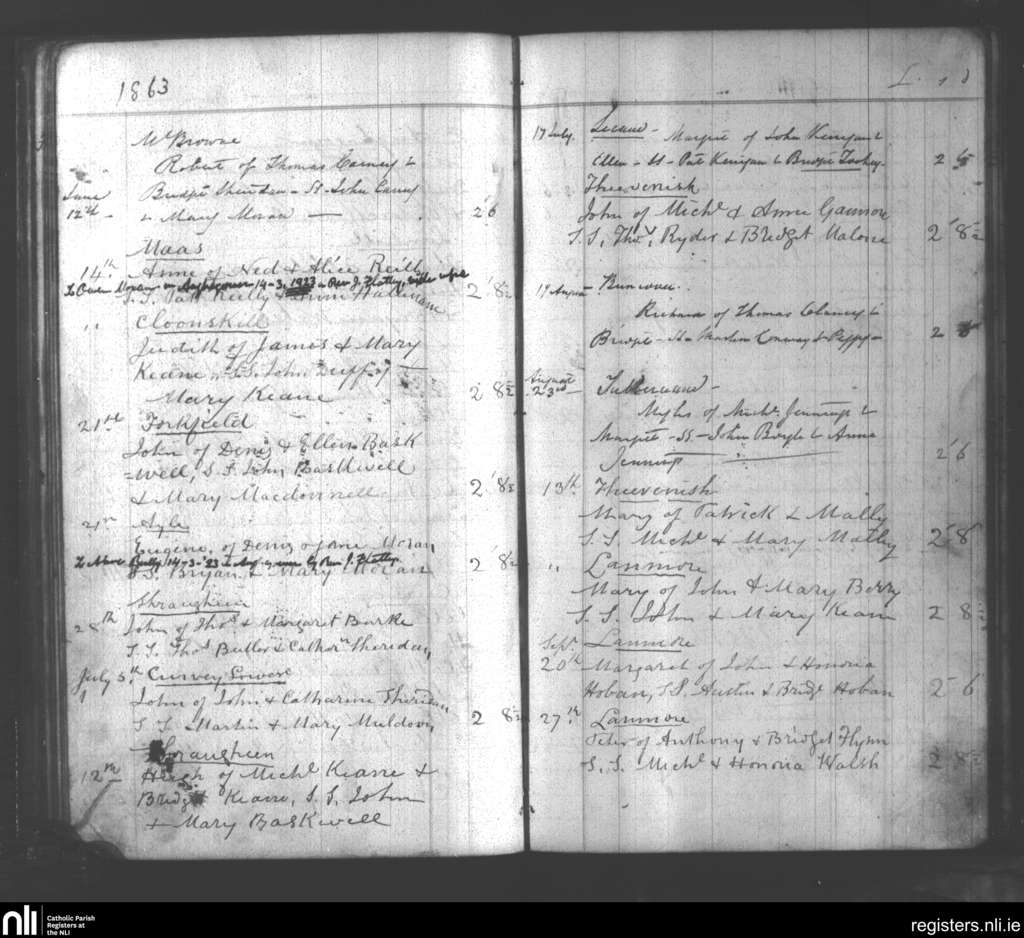 1863
Mt Browne
Robert of Thomas Carney &
June Bridget Sheridan - SS - John Carney
12th - & Mary Moran — 2 6
Maas
14th. Anne of Ned & Alice Reilly
To Owen Moran in Aughagower 14-3-1923 Rev J. Flatley, wife
S.S. Pat Reilly & Ann 2 8½
" Cloonskill
Judith of James & Mary
Keane - S.S. John Duffy
Mary Keane 2 8½
21st Forkfield
John of Denis & Ellen Bask
=well, S.S. John Baskwell
& Mary Macdonnell 2 8½
21st Ayle
Eugene, of Denis & Jane Moran
14-3-'23 by Rev. J. Flatley
S.S. Bryan & Mary Moran 2 8½
Shraugheen
28th John of Thos. & Margaret Burke
S.S. Thos. Butler & Cathern. Sheridan
July 5th Curvey Lower
John of John & Catharine Sheridan
S.S. Martin & Mary Muldoon 2 8½
Sraugheen
12th Hugh of Michl. Keane &
Bridget Keane, S.S. John
& Mary Baskwell
£ s d
17 July, Lecane - Margret of John Kerigan &
Ellen - SS - Pat Kerigan & Bridget 2 6
Theevenish
John of Michl. & Anne Gannon
S.S. Thos. Ryder & Bridget Malone 2 8½
17 August Buncome
Richard of Thomas Clancy &
Bridget - SS - Martin Conway & Peggy - 2 6
August
23rd -
Myles of Michl. Jennings &
Margret - SS - John Boyle & Anne
Jennings 2 6
13th. Theevenish
Mary of Patrick & Mally
S.S. Michl. & Mary Mally 2 8
" Lanmore
Mary of John & Mary Berry
S.S. John & Mary Kean 2 8½
Sepr. Lanmore
20th Margaret of John & Honoria
Hoban, S.S. Austin & Bridgt. Hoban 2 6
27th. Lanmore
Peter of Anthony & Bridget Flynn
S.S. Michl. & Honoria Walsh 2 8½
nli Catholic Parish
Registers at
the NLI
registers.nli.ie